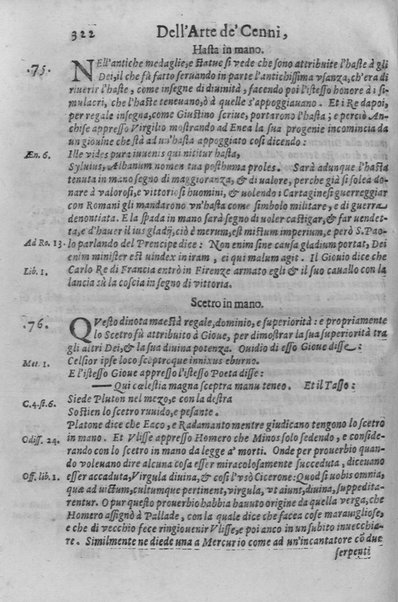 322 Dell'Arte de' Cenni,
Hasta in mano.
.75. NEll'antiche medaglie, e statue si vede che sono attribuite l'haste à gli
Dei, il che fù fatto seruando in parte l'antichissima vsanza, ch'era di
riuerir l'haste, come insegne di diuinità, facendo poi l'istesso honore à i si-
mulacri, che l'haste teneuano, ò à quelle s'appoggiauano. Et i Re dapoi,
per regale insegna, come Giustino scriue, portarono l'hasta; e perciò An-
chise appresso Virgilio mostrando ad Enea la sua progenie incomincia da
vn giouine che stà ad vn'hasta appoggiato così dicendo:
Æn. 6. Ille vides pura iuuenis qui nititur hasta,
Syluius, Albanum nomen tua posthuma proles. Sarà adunque l'hasta
tenuta in mano segno di maggioranza, & di valore, perche già si solea do-
nare à valorosi, e vittoriosi huomini, & uolendo i Cartaginesi guerreggiar
con Romani gli mandarono vn'hasta come simbolo militare, e di guerra
denontiata. E la spada in mano sarà segno di uoler castigar, & far uendet-
ta, e d'hauer il ius gladij, ciò è merum, est mictum imperium, e però S. Pao-
Ad Ro. 13. lo parlando del Prencipe dice: Non enim sine causa gladium portat, Dei
enim minister est uindex in iram, ei qui malum agit. Il Giouio dice che
Lib. 1. Carlo Re di Francia entrò in Firenze armato egli & il suo cauallo con la
lancia sù la coscia in segno di vittoria.
Scetro in mano.
.76. QVesto dinota maestà regale, dominio, e superiorità: e propriamente
lo Scetro fù attribuito à Gioue, per dimostrar la sua superiorità tra
gli altri Dei, & la sua diuina potenza. Ouidio di esso Gioue disse:
Met. 1. Celsior ipse loco sceptroque innixus eburno.
E l'istesso Gioue appresso l'istesso Poeta disse:
— Qui cœlestia magna sceptra manu teneo. Et il Tasso:
C. 4. st. 6. Siede Pluton nel mezo, e con la destra
Sostien lo scetro ruuido, e pesante.
Platone dice che Eaco, e Radamanto mentre giudicano tengono lo scetro
Odiss. 24. in mano. Et Vlisse appresso Homero che Minos solo sedendo, e conside-
rando con lo scetro in mano da legge a' morti. Onde per prouerbio quan-
do voleuano dire alcuna cosa esser miracolosamente succeduta, diceuano
Off. lib. 1. esser accaduta, Virgula diuina, & così l'vsò Cicerone: Quod si uobis omnia,
quæ ad uictum, cultumque pertinent, virgula, vt aiunt, diuina, suppedita-
rentur. O pur questo prouerbio habbia hauuto origine da quella verga, che
Homero assignò à Pallade, con la quale dice che facea cose marauigliose,
e che di vecchio fece ringiouenir Vlisse, e poi anco in un subito inuecchia-
re. Similmente ne diede una a Mercurio come ad un'incantatore cō due
serpenti